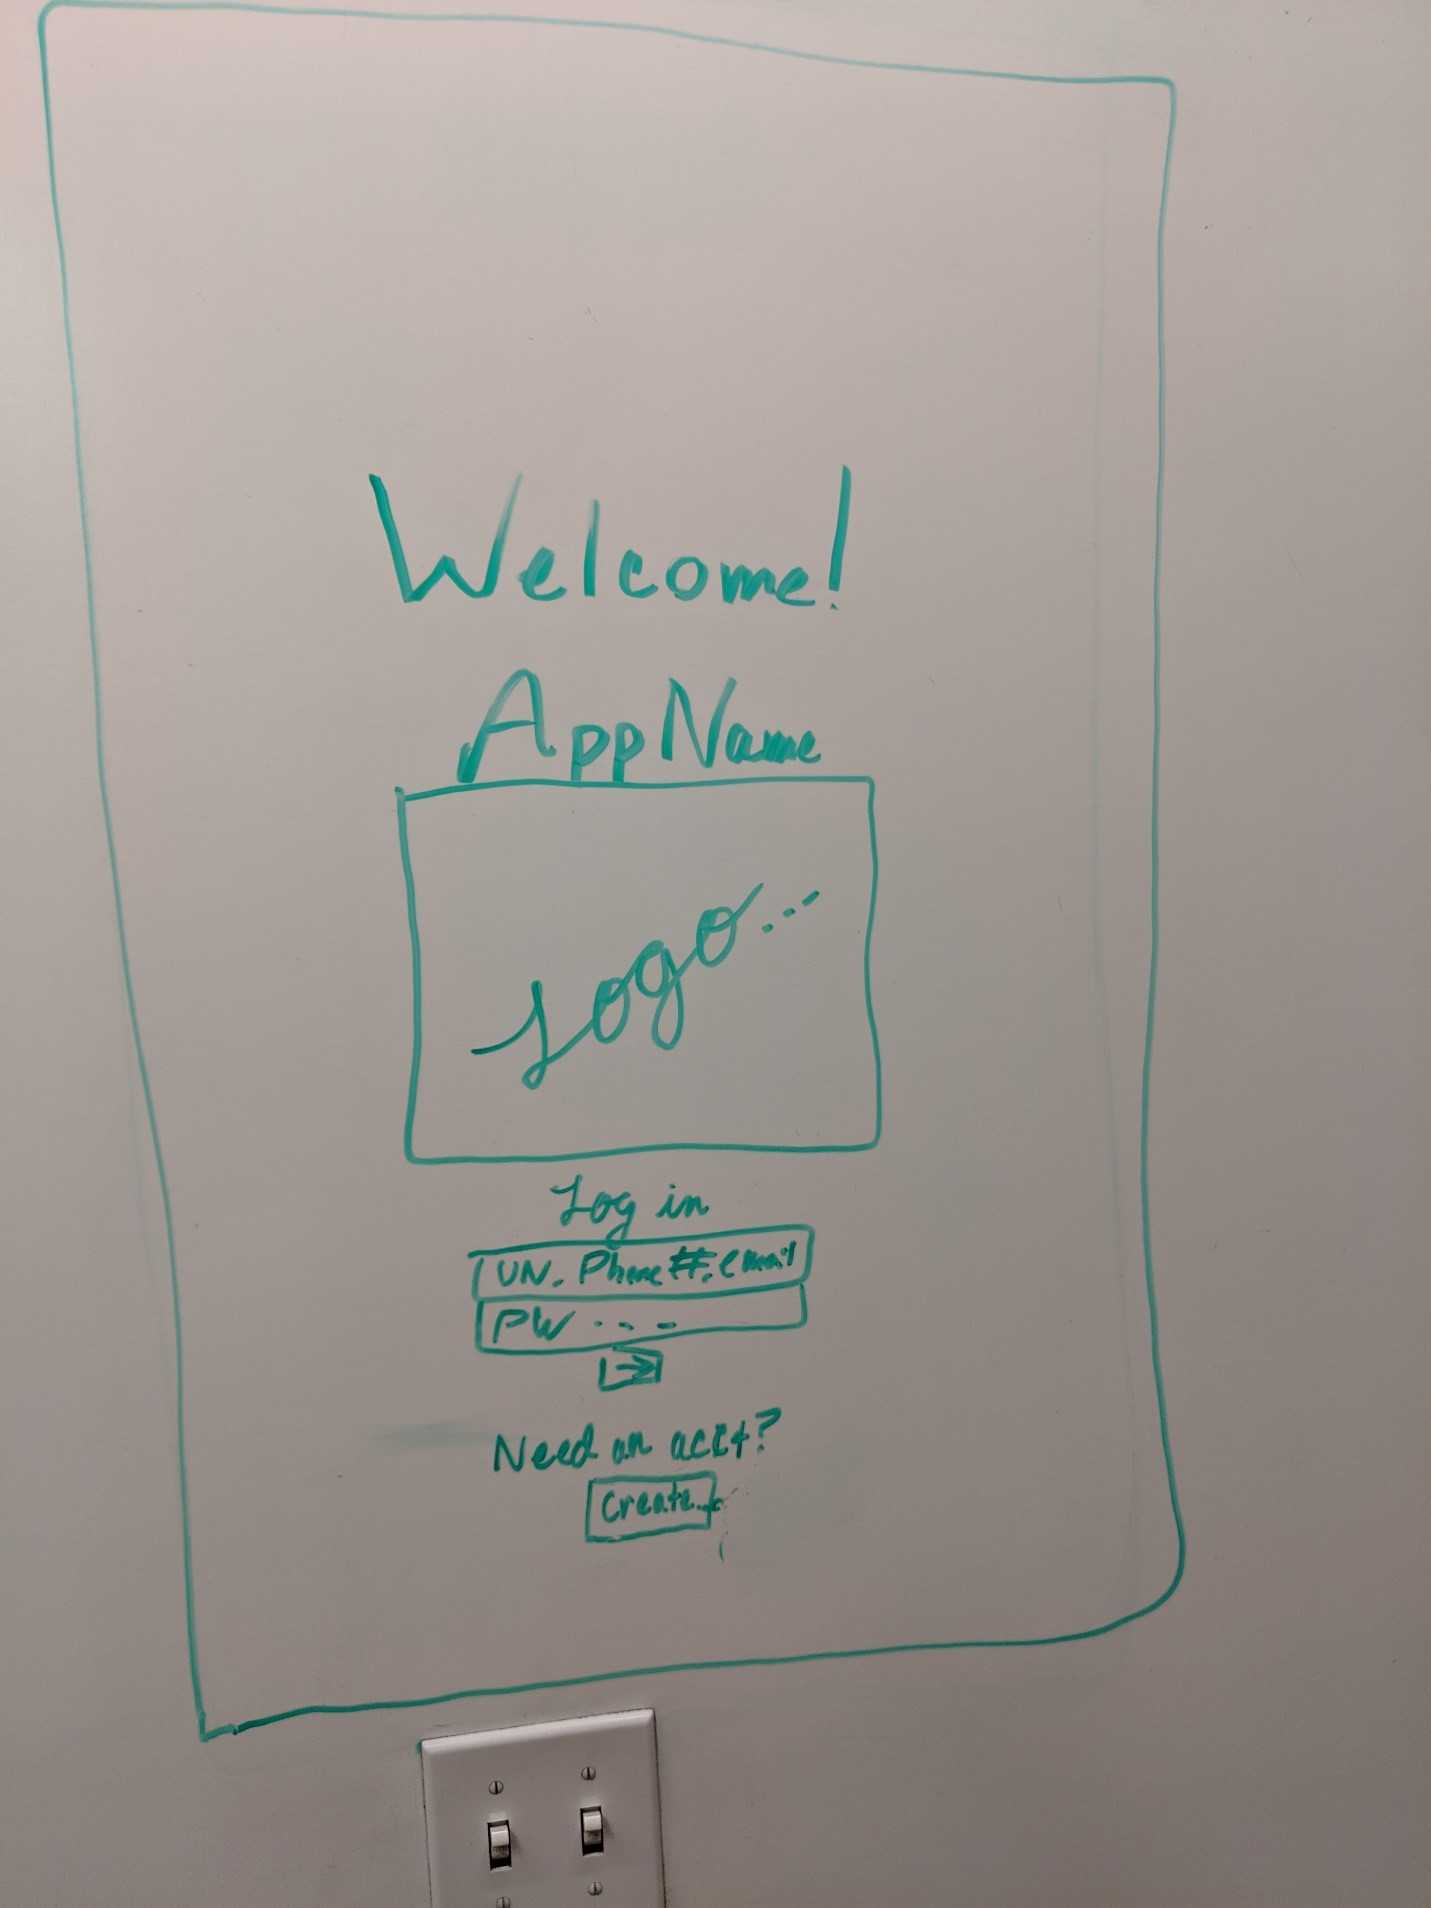 Welcome!
AppName
Logo...
Log in
UN. Phone#. email
PW ...
Need an acct?
Create..